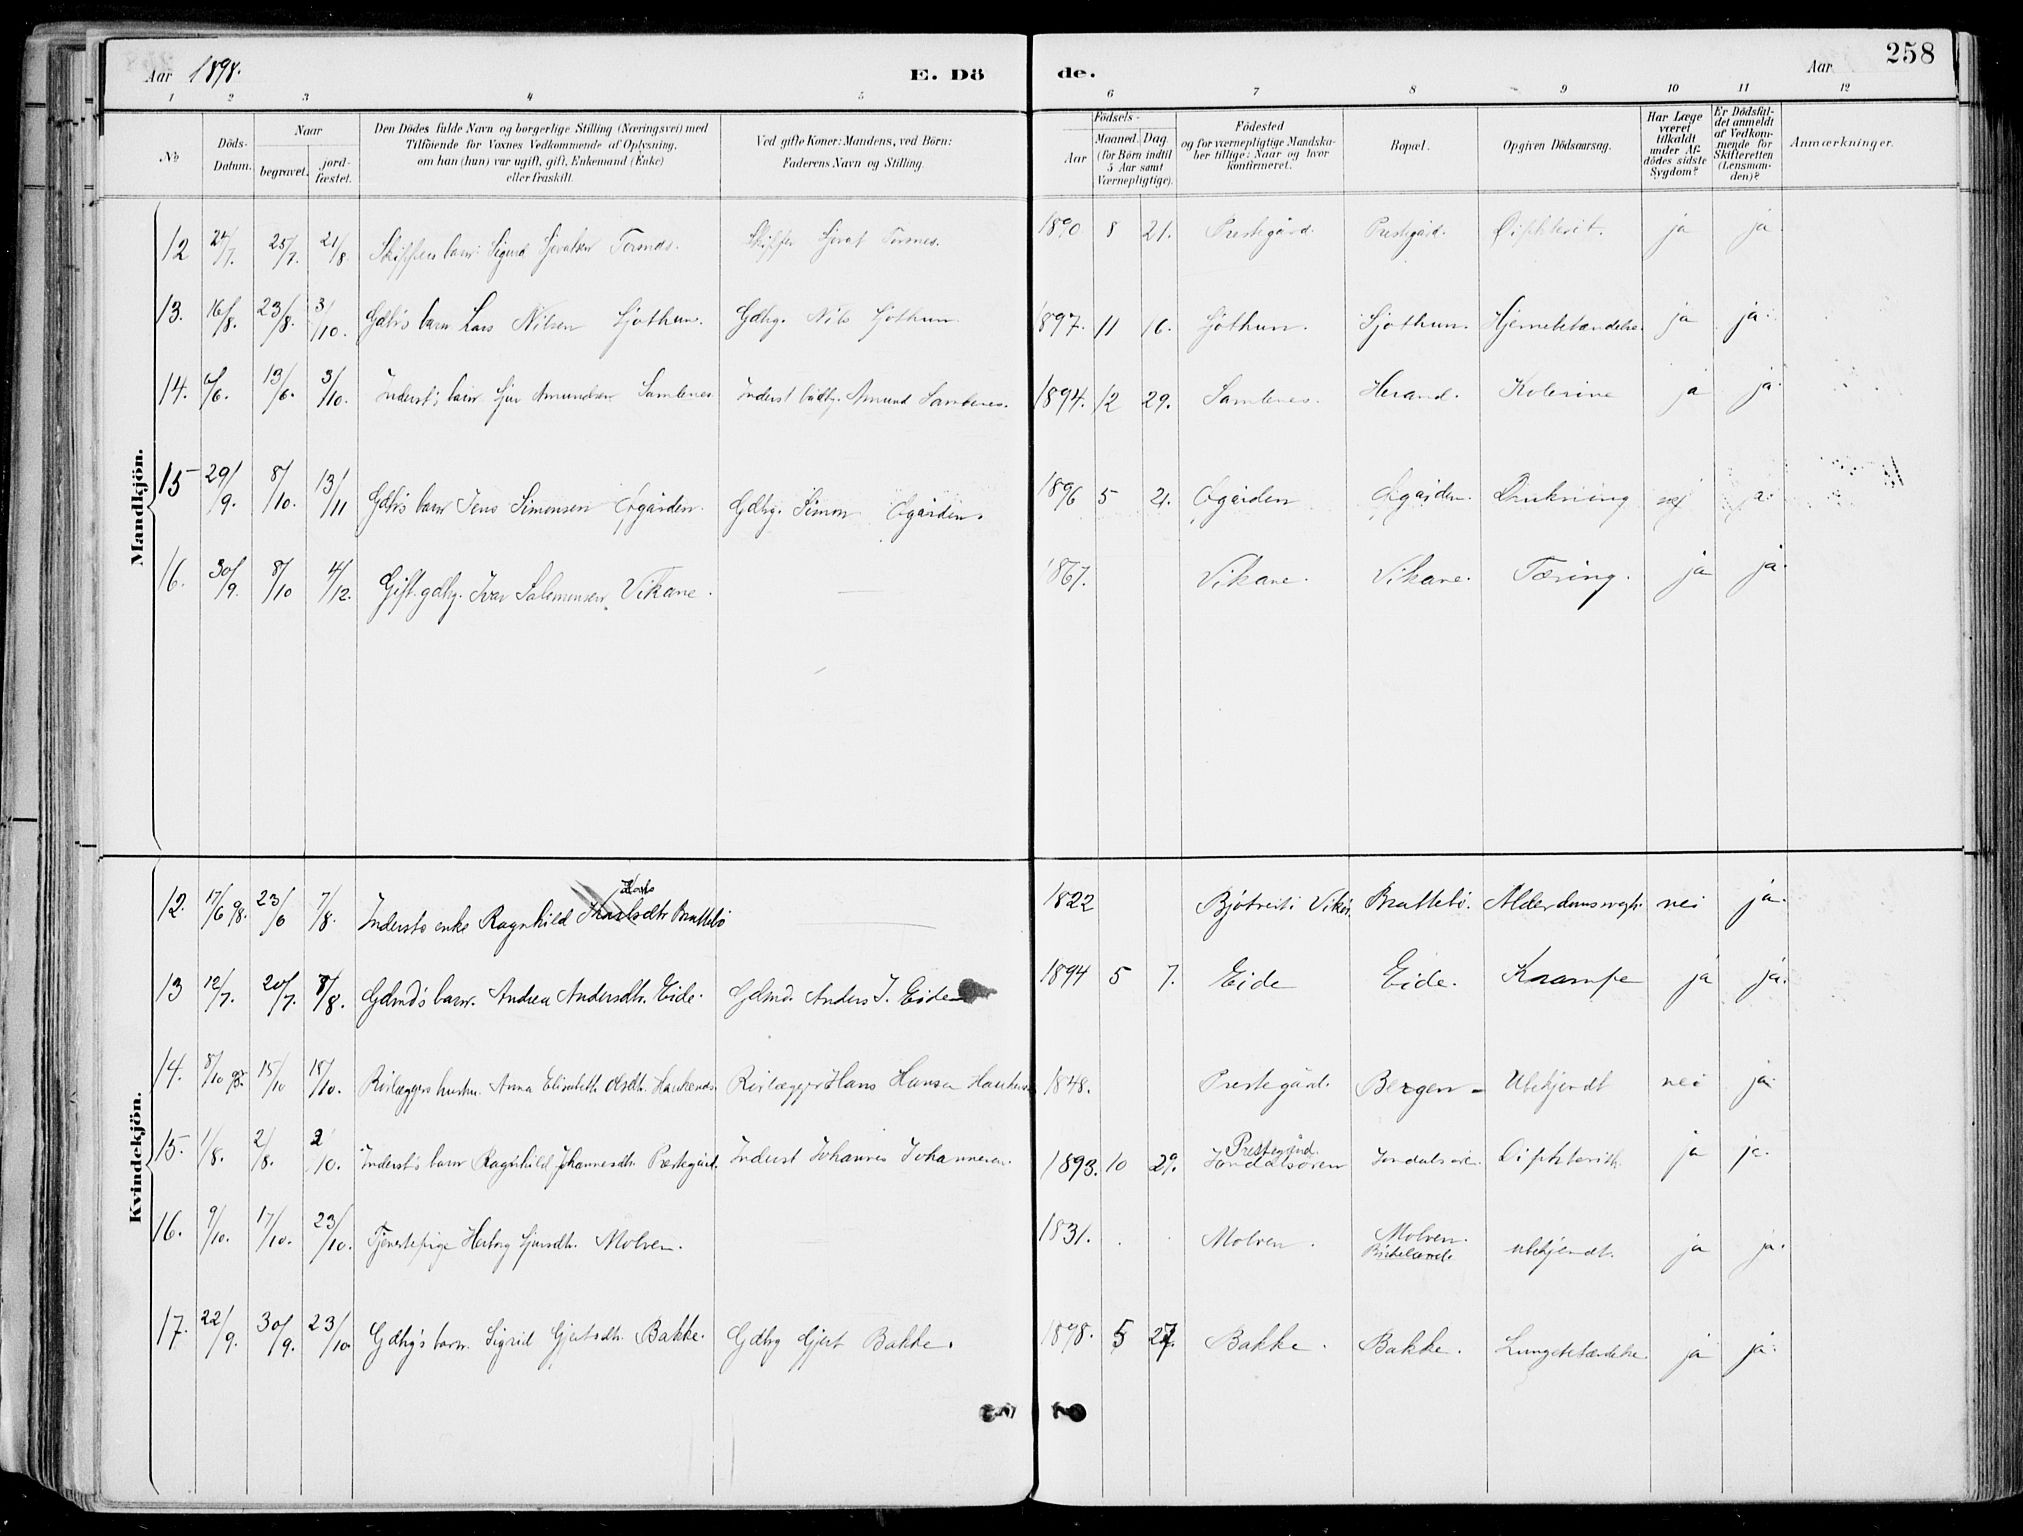 Aar 1898. E. Dö
de. Aar 258
1 2 3 4 5 6 7 8 9 10 11 12
No
Döds-Datum.
Naar begravet. jord-fæstet.
Den Dödes fulde Navn og borgerlige Stilling (Næringsvei) med
Tilföiende for Voxnes Vedkommende af Oplysning,
om han (hun) var ugift, gift, Enkemand (Enke)
eller fraskilt.
Ved gifte Koner: Mandens, ved Börn:
Faderens Navn og Stilling.
Födsels-
Aar Maaned. Dag.
(for Börn indtil
5 Aar samt
Værnepligtige).
Födested
og for værnepligtige Mandska-
ber tillige: Naar og hvor
konfirmeret.
Bopæl.
Opgiven Dödsaarsag.
Har Læge
været
tilkaldt
under Af-
dödes sidste
Sygdom?
Er Dödsfal-
det anmeldt
af Vedkom-
mende for
Skifteretten
(Lensman-
den)?
Anmærkninger.
Mandkjön.
12 24/7. 25/7. 21/8. Skippers barn Sigurd Sjovatsen Tornæs. Skipper Sjovat Tornes. 1890 8 21. Prestegård. Prestegård. Difkterit. ja ja.
13. 16/8. 23/8. 3/10. Gdbr's barn Lars Nilsen Sjothun. Gdbr. Nils Sjothun. 1897. 11 16. Sjothun. Sjothun. Hjernebetændelse. ja ja.
14. 6/6. 13/6. 3/10. Inderst's barn Sjur Amundsen Samlenes Inderst Amund Samlenes. 1894. 12 29. Samlenes. Herand. Kolerine ja ja.
15 29/9. 8/10. 13/11 Gdbr's barn Jens Simonsen Øgården. Gdbr. Simon Øgården. 1896 5 21. Øgården Øgården. Drukning nej ja.
16. 30/9. 8/10 4/12. Gift gdbr. Ivar Salemonsen Vikane. 1867. Vikane. Vikane. Tæring. ja ja.
Kvindekjön.
12. 17/6 98. 23/6 7/8. Inderst's enke Ragnhild Brattebö 1822 Bjotveit i Vikör. Brattebö. Alderdomssvagh. nei ja.
13 12/7. 20/7. 8/8. Gdmd's barn. Andrea Andersdtr. Eide. Gdmd. Anders J. Eide 1894 5 7. Eide Eide. Krampe ja ja.
14. 8/10 98. 15/10 18/10. hustru Anna Elisabeth Olsdtr. Haukenes. Hans Hansen 1848. Prestegård. Bergen Ubekjendt nei ja.
15. 1/8. 2/8. 2/10. Inderst's barn Ragnhild Johannesdtr. Prestegård. Inderst Johannes Johannesen. 1893. 10 29. Prestegård. Jondalsören Jondalsören Difkterith. ja ja.
16. 9/10. 17/10. 23/10. Tjenestepige Herborg Sjursdtr. Molven. 1831. Molven. Molven. Birkelands. ubekjendt. ja ja.
17. 22/9. 30/9. 23/10. Gdbr's barn. Sigrid Gjertsdtr. Bakke. Gdbr Gjert Bakke. 1898. 5 27. Bakke. Bakke. Lungebetændelse. ja ja.